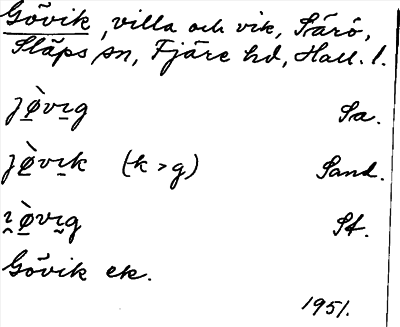 Gövik, villa och vik, Särö,
Släps sn, Fjäre hd, Hall. l.
jø̀vıg Sa.
jø̀vık (k > g) Sand.
ı̯ø̀vıg St.
Gövik ek.
1951.